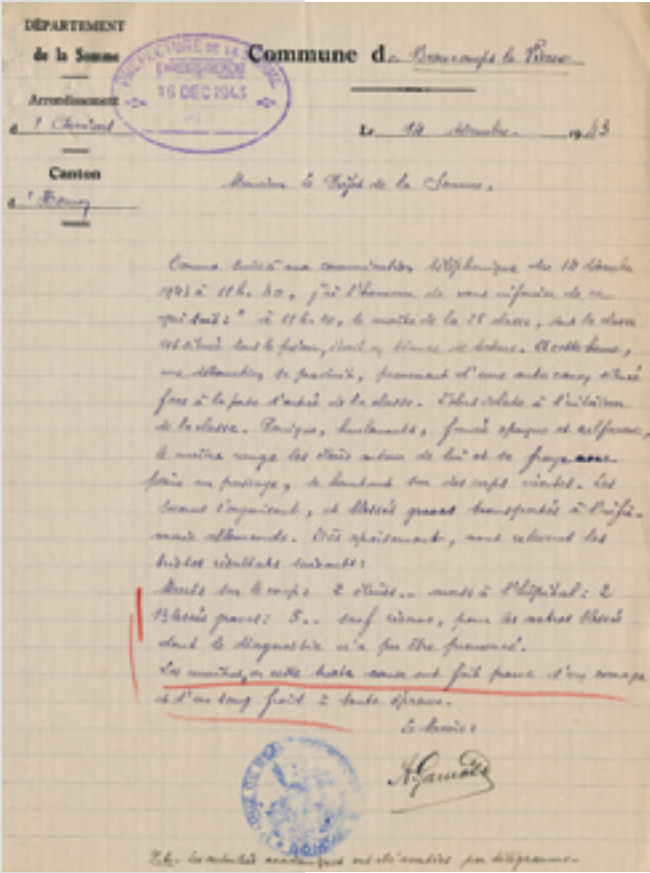 DÉPARTEMENT
de la Somme
Commune de Beaucamps le Vieux
PRÉFECTURE DE LA SOMME
ENREGISTREMENT
16 DEC 1943
Arrondissement
d'
Le 14 décembre 1943
Canton
d'
Monsieur le Préfet de la Somme,
Comme suite à ma communication téléphonique du décembre
1943 à 11 h. 30, j'ai l'honneur de vous informer de ce
qui suit : " à 11 h. 10, le maître de la classe, dont la classe
est située sous le préau, était en séance de . A cette heure,
une détonation se produit, provenant d'un canon situé
face à la porte d'entrée de la classe. L'obus éclate à l'intérieur
de la classe. Panique, hurlements, fumée opaque et
le maître range les élèves autour de lui et se fraye
un passage, se heurtant sur des corps . Les
secours s'organisent, et blessés graves transportés à l'infir-
merie allemande. Dès apaisement, nous relevons les
tristes résultats suivants :
Morts sur le corps 2 élèves .. morts à l'hôpital : 2
Blessés graves : 5 .. sauf , pour les autres blessés
dont le diagnostic n'a pu être prononcé.
Les maîtres, en cette triste ont fait preuve d'un courage
et d'un sang froid à toute épreuve.
Le Maire :
P.S. - Les autorités académiques ont été averties par télégramme -